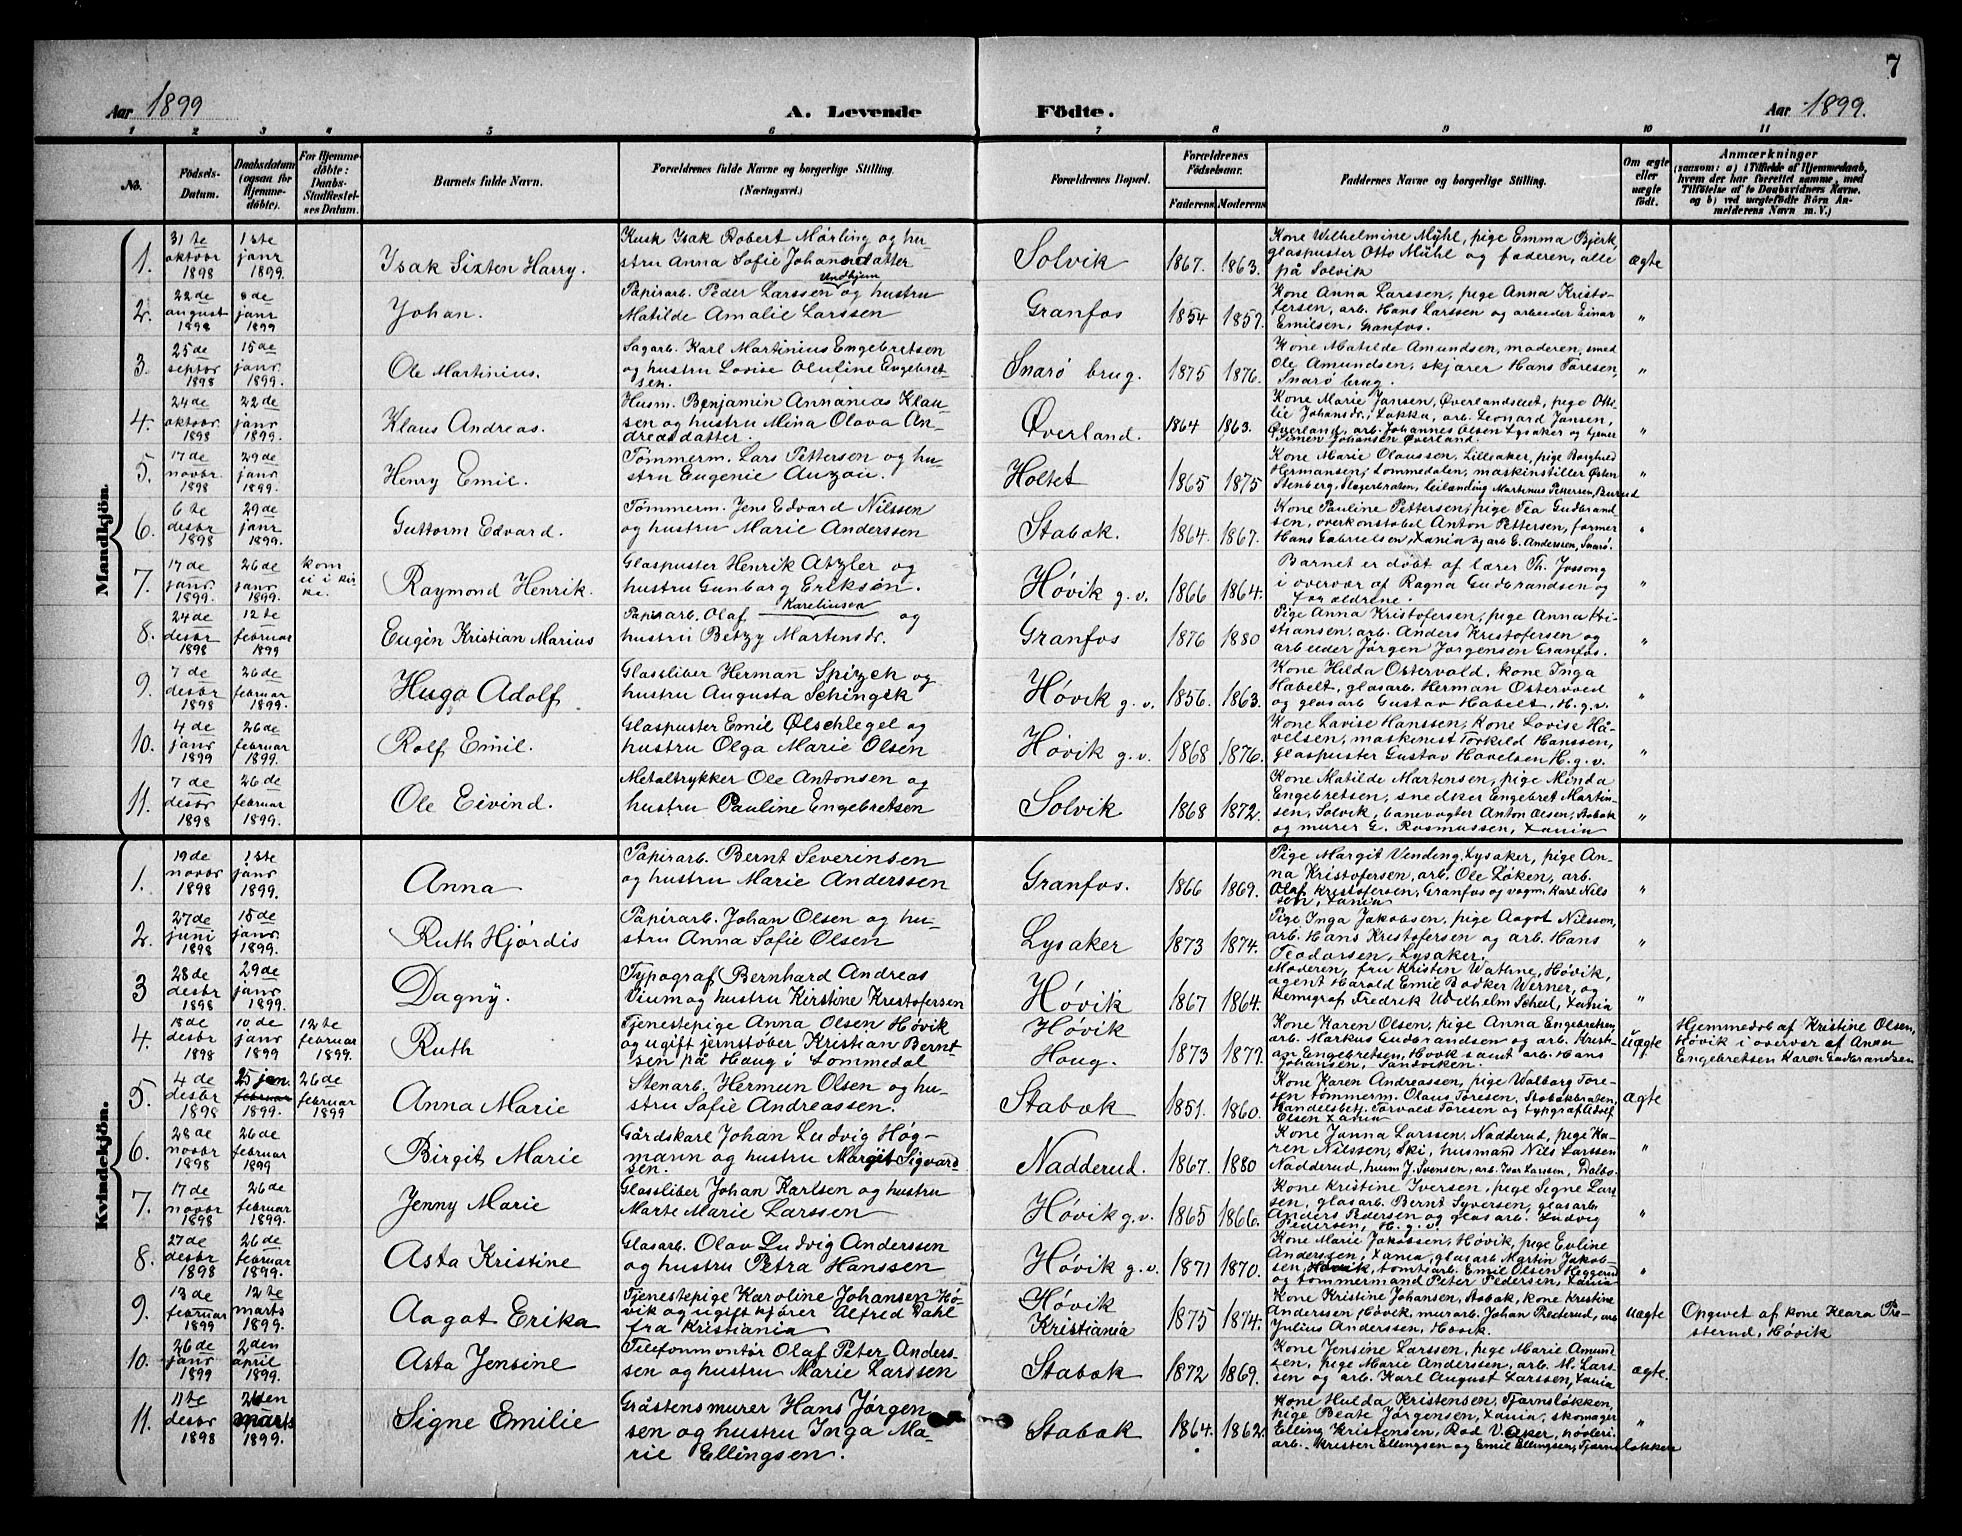 7
Aar 1899
A. Levende
Födte.
Aar 1899.
1 2 3 4 5 6 7 8 9 10 11
No.
Födsels-
Datum.
Daabsdatum
(ogsaa for
Hjemme-
döbte).
For Hjemme-
döbte:
Daabs-
Stadfæstel-
ses Datum.
Barnets fulde Navn.
Forældrenes fulde Navne og borgerlige Stilling.
(Næringsvei.)
Forældrenes Bopæl.
Forældrenes
Födselsaar.
Faderens. Moderens.
Faddernes Navne og borgerlige Stilling.
Om ægte
eller
uægte
födt.
Anmærkninger
(saasom: a) i Tilfælde af Hjemmedaab,
hvem der har forrettet samme, med
Tilföielse af to Daabsvidners Navne.
og b) ved uægtefödte Börn An-
melderens Navn m. V.)
Mandkjön.
1.
31 te
oktobr
1898
1ste
janr
1899.
Isak Sixten Harry.
Kusk Isak Robert Mörling og hu-
stru Anna Sofie Johansdatter
Solvik
1867. 1863.
Kone Wilhelmine Mühl, pige Emma Bjerk,
glaspuster Otto Mühl og faderen, alle
på Solvik
ægte
2.
22 de
august
1898
8 de
janr
1899
Johan.
Undhjem
Papirarb. Peder Larssen og hustru
Matilde Amalie Larssen
Granfos
1854 1857.
Kone Anna Larssen, pige Anna Kristo-
fersen, arb. Hans Larssen og arbeider Einar
Emilsen, Granfos.
"
3.
25 de
septbr
1898
15 de
janr
1899.
Ole Martinius.
Sagarb. Karl Martinius Engebretsen
og hustru Lovise Olufine Engebret-
sen.
Snarø brug.
1875 1876.
Kone Matilde Amundsen, moderen, smed
Ole Amundsen, skjærer Hans Toresen,
Snarø brug.
"
4.
24 de
oktobr.
1898
22 de
janr
1899
Klaus Andreas.
Husm. Benjamin Annanias Klau-
sen og hustru Mina Olava An-
dreasdatter.
Øverland.
1864 1863.
Kone Marie Jansen, Øverlandseet, pige Otti-
lie Johansdr., Løkka, arb. Leonard Jansen,
Øverland, arb. Johannes Olsen Lysaker og tjener
Simen Johansen Øverland.
"
5.
17 de
novbr
1898
29 de
janr
1899.
Henry Emil.
Tömmerm. Lars Pettersen og hu-
stru Eugenie Auzou.
Holtet
1865 1875
Kone Marie Olaussen, Lilleaker, pige Borghild
Hermansen, Lommedalen, maskinstiller Østen
Stenberg, Slagerbraten, leilænding Martinus Pettersen, Burud
"
6.
6 te
desbr
1898
29 de
janr
1899.
Guttorm Edvard.
Tömmerm. Jens Edvard Nilssen
og hustru Marie Anderssen
Stabæk.
1864. 1867.
Kone Pauline Pettersen, pige Tea Gudbrand-
sen, overkonstabel Anton Pettersen, former
Hans Gabrielsen, Xania og arb E. Anderssen, Snarø.
"
7.
17 de
janr
1899.
26 de
janr
1899.
kom
ei i kir-
ke.
Raymond Henrik.
Glaspuster Henrik Atzler og
hustru Gunborg Erikson.
Høvik g. v.
1866 1864.
Barnet er döbt af lærer Th. Jossong
i overvær af Ragna Gudbrandsen og
Forældrene.
"
8.
24 de
desbr
1898
12 te
februar
1899
Eugén Kristian Marius
Papirarb. Olaf Kareliusen og
hustru Betzy Martensdr.
Granfos
1876 1880
Pige Anna Kristofersen, pige Anna Kri-
stiansen, arb. Anders Kristofersen og
arbeider Jörgen Jörgensen Granfos.
"
9.
7 de
desbr
1898
26 de
februar
1899.
Hugo Adolf
Glassliber Herman Spizeck og
hustru Augusta Schingek
Høvik g. v.
1856. 1863.
Kone Hilda Ostervald, kone Inga
Habelt, glasarb. Herman Ostervold
og glasarb Gustav Habelt, H. g. v.
"
10.
4 de
janr
1899
26 de
februar
1899.
Rolf Emil.
Glaspuster Emil Ølschlegel og
hustru Olga Marie Olsen
Høvik g. v.
1868 1876.
Kone Lovise Hanssen, kone Lovise Hå-
velsen, maskinist Torkild Hanssen,
glaspuster Gustav Havelsen H. g. v.
"
11.
7 de
desbr
1898
26 de
februar
1899.
Ole Eivind.
Metaltrykker Ole Antonsen og
hustru Pauline Engebretsen
Solvik
1868 1872.
Kone Matilde Martensen, pige Minda
Engebretsen, snedker Engebret Martin-
sen, Solvik, banevogter Anton Olsen, Stabæk
og murer G. Rasmussen, Xania
"
Kvindekjön.
1.
19 de
novbr
1898
1ste
janr
1899.
Anna
Papirarb. Bernt Severinsen
og hustru Marie Anderssen
Granfos.
1866 1869.
Pige Margit Vending, Lysaker, pige An-
na Kristofersen, arb. Ole Löken, arb.
Olaf Kristofersen, Granfos og vogm. Karl Nils
sen, Xania
"
2.
27 de
juni
1898
15 de
janr.
1899.
Ruth Hjördis
Papirarb. Johan Olsen og hu-
stru Anna Sofie Olsen
Lysaker
1873 1874.
Pige Inga Jakobsen, pige Aagot Nilsson,
arb. Hans Kristofersen og arb. Hans
Teodorsen, Lysaker.
"
3
28 de
desbr
1898
29 de
janr
1899.
Dagny.
Typograf Bernhard Andreas
Vium og hustru Kirstine Kristofersen
Høvik
1867 1864.
Moderen, fru Kristen Wathne, Høvik,
agent Harold Emil Bödker Werner, og
kemigraf Fredrik Wilhelm Scheel, Xania
"
4.
18 de
desbr
1898
10 de
janr
1899
12 te
februar
1899.
Ruth
Tjenestepige Anna Olsen Høvik
og ugift jernstöber Kristian Bernt-
sen på Haug i Lommedal
Høvik
Haug.
1873 1877.
Kone Karen Olsen, pige Anna Engebretsen,
arb. Markus Gudbrandsen og arb. Kristi-
an Engebretsen, Høvik samt arb. Hans
Johansen, Sandviken.
Uægte
Hjemmedöb af Kristine Olsen,
Høvik i overvær af Anna
Engebretsen Karen Gudbrandsen
5.
4 de
desbr
1898
25 jan.
februar
1899.
26 de
februar
1899
Anna Marie
Stenarb. Hermun Olsen og hu-
stru Sofie Andreassen.
Stabæk
1851. 1860.
Kone Karen Andreassen, pige Walborg Tore-
sen tömmerm. Olaus Toresen, Stabækbraten,
Handelsbetj. Torvald Toresen og typograf Adolf
Olsen Xania
ægte
6.
28 de
novbr
1898
26 de
februar
1899
Birgit Marie
Gårdskarl Johan Ludvig Høg-
mann og hustru Margit Sigvard-
sen.
Nadderud.
1867. 1880
Kone Janna Larssen, Nadderud, pige Ka-
ren Nilssen, Ski, husmand Nils Larssen
Nadderud, husm J. Svensen, arb. Ivar Larssen, Dalbo.
"
7.
17 de
novbr
1898
26 de
februar
1899.
Jenny Marie
Glassliber Johan Karlsen og hustru
Marte Marie Larssen
Høvik g. v.
1865 1866.
Kone Kristine Iversen, pige Signe Lars
sen, glasarb. Bernt Syversen, glasarb.
Anders Pedersen og glasarb. Ludvig
Pedersen, H. g. v.
"
8.
27 de
desbr
1898
26 de
februar
1899.
Asta Kristine
Glasarb. Olav Ludvig Anderssen
og hustru Petra Hanssen
Høvik g. v.
1871 1870.
Kone Marie Jakobsen, Høvik, pige Evline
Anderssen, Xania, glasarb Martin Jakob-
sen, Høvik, tomtsarb. Emil Olsen Heggerud
og tömmermand Peter Pedersen, Xania
"
9.
13 de
februar
1899
12 te
marts
1899.
Aagot Erika
Tjenestepige Karoline Johansen Hö-
vik og ugift kjörer Alfred Dahl
fra Kristiania
Høvik
Kristiania
1875 1874.
Kone Kristine Johansen, Stabæk, kone Kristine
Anderssen, Høvik, murarb. Johan Rederud, arb
Julius Anderssen, Høvik.
uægte
Opgivet af kone Klara Pre-
sterud, Høvik
10.
26 de
janr
1899
2 den
april
1899.
Asta Jensine
Telefonmontör Olaf Peter Anders-
sen og hustru Marie Larssen
Stabæk
1872 1869.
Kone Jensine Larssen, pige Marie Amund
sen, pige Marie Anderssen, arb. M. Lars-
sen og arb. Karl August Larssen, Xania
ægte.
11.
11 te
desbr
1898
marts
1899.
Signe Emilie
Gråstensmurer Hans Jörgen-
sen og hustru Inga Ma-
rie Ellingsen.
Stabæk
1864. 1862.
Kone Hulda Kristensen, Tjernsløkken,
pige Beate Jörgensen, Xania, skomager
Elling Kristensen, Rod V. Aker, høvleri-
arb. Kristen Ellingsen og Emil Ellingsen, Tjernsløkken
"